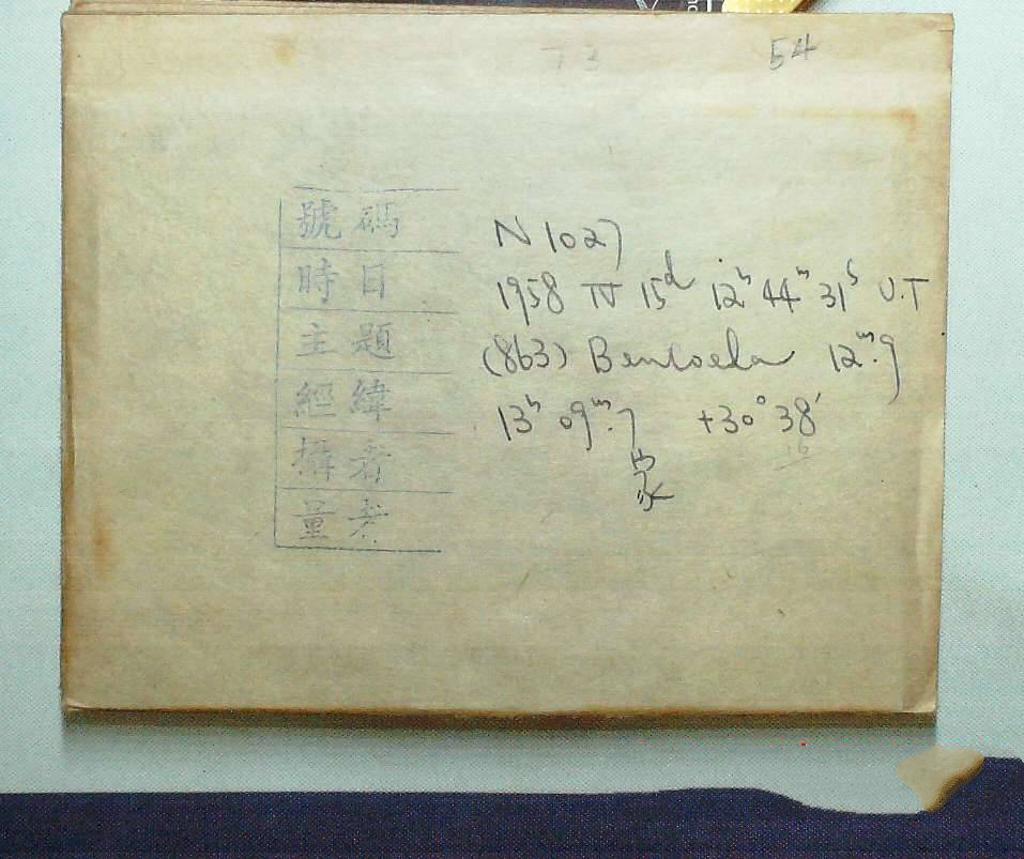 54
號碼 N 1027
時日 1958 IV 15d 12h 44m 31s U.T
主題 (863) Benkoela 12m.9
經緯 13h 09m.7 +30° 38'
攝者 家
量者